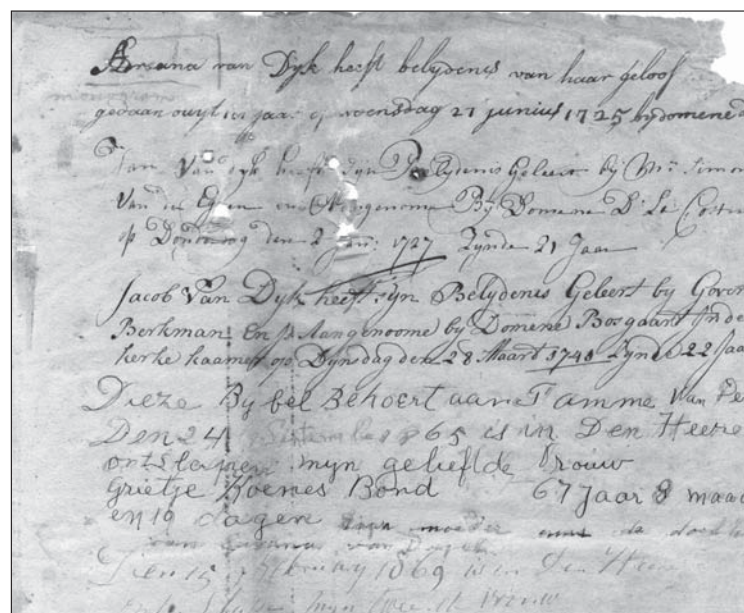 van Dyk heeft belydenis van haar geloof
monogrom
gedaan jaar op woensdag 21 junius 1725 by domene
Jan Van Dyk heeft Zijn Belydenis Geleert bij Mr. Simon
Van en Aangenome Bij Domene D: Le
op Donderdag den 2 Jan: 1727 Zynde 21 Jaar
Jacob Van Dyk heeft zijn Belydenis Geleert by Gover
Berkman En is Aangenoome by Domene Bosgaart In de
kerke kaamer op Dynsdag den 28 Maart Zynde 22 Jaa
Dieze Bybel Behoert aan Tamme Van De
Den 24 September 1865 is in Den Heere
ontslapen myn geliefde Vrouw
Grietje Koenes Bond 67 Jaar 8 maa
en 19 dagen moeder de
van van
Den 15 February 1869 is in Den Heere
myn Vrouw